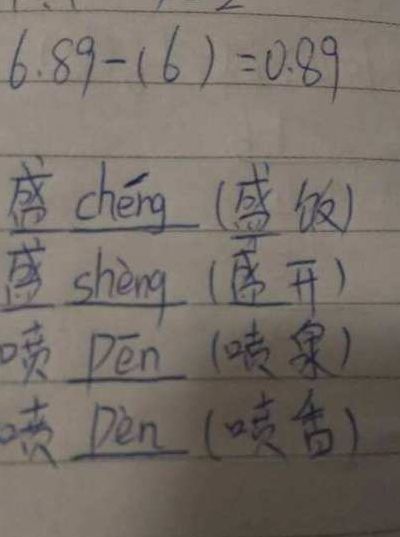 6.89-(6)=0.89
盛 chéng (盛饭)
盛 shèng (盛开)
喷 pēn (喷泉)
喷 pèn (喷香)